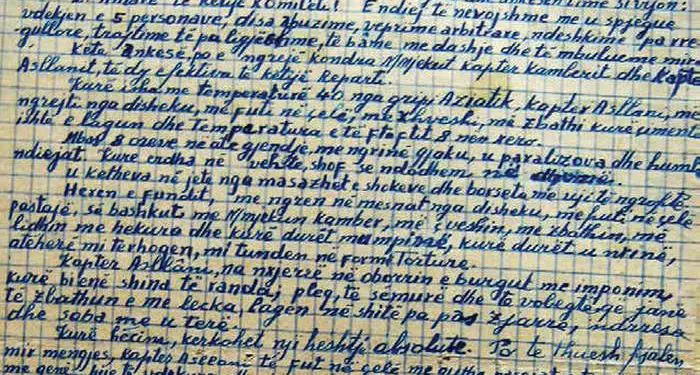 të këtije komitetu! E ndiej të nevojshme me u spjegue
vdekjen e 5 personave, disa abuzime, veprime arbitrare, ndeshkime pa rre
gullore, trajtime të pa ligjëshme, të bâme me dashje dhe të mbulueme mirë
Këte ankesë, po e ngrejë kondra N/Mjekut kapter Kamberit dhe kapte
Asllanit, të dy efektiva të këtije Reparti.
Kurë isha me temperaturë 40 nga gripi Aziatik, Kapter Asllani, më
ngrejti nga disheku, më futi në çelë, më xhveshi, më zbathi kurë çimento
ishte e lagun dhe Temperatura e të ftoftit 8 nën zero.
Mbas 8 oreve në atë gjendje, më ngrinë gjaku, u paralizova dhe humb
ndiejat. Kurë erdha në vehëte, shof se ndodhem në
u ktheva në jetë nga masazhet e shokeve dhe borseta me ujë të ngroftë.
Heren e fundit, me ngren në mesnat nga disheku, më futi në çelë
pastajë, së bashkut me N/mjekun Kamber, më çveshin, më zbathin, më
lidhin me hekura dhe kurë durët kurë durët u nxinë,
atëherë mi terhogen, mi tunden në Forme Torture.
Kapter Asllâni, na njerrë në oborrin e burgut me imponim,
kurë bienë shina të randa, pleq, të sëmurë dhe të vobegtë që janë
të zbathun e me lecka, lagen në shitë pa pas zjarrë, ndrresa
dhe soba me u terë.
Kurë hecim, kerkohet nji heshtje absolute. Po te thuesh fjalen
mir mengjes, Kapter Asllani të fut në çelë me